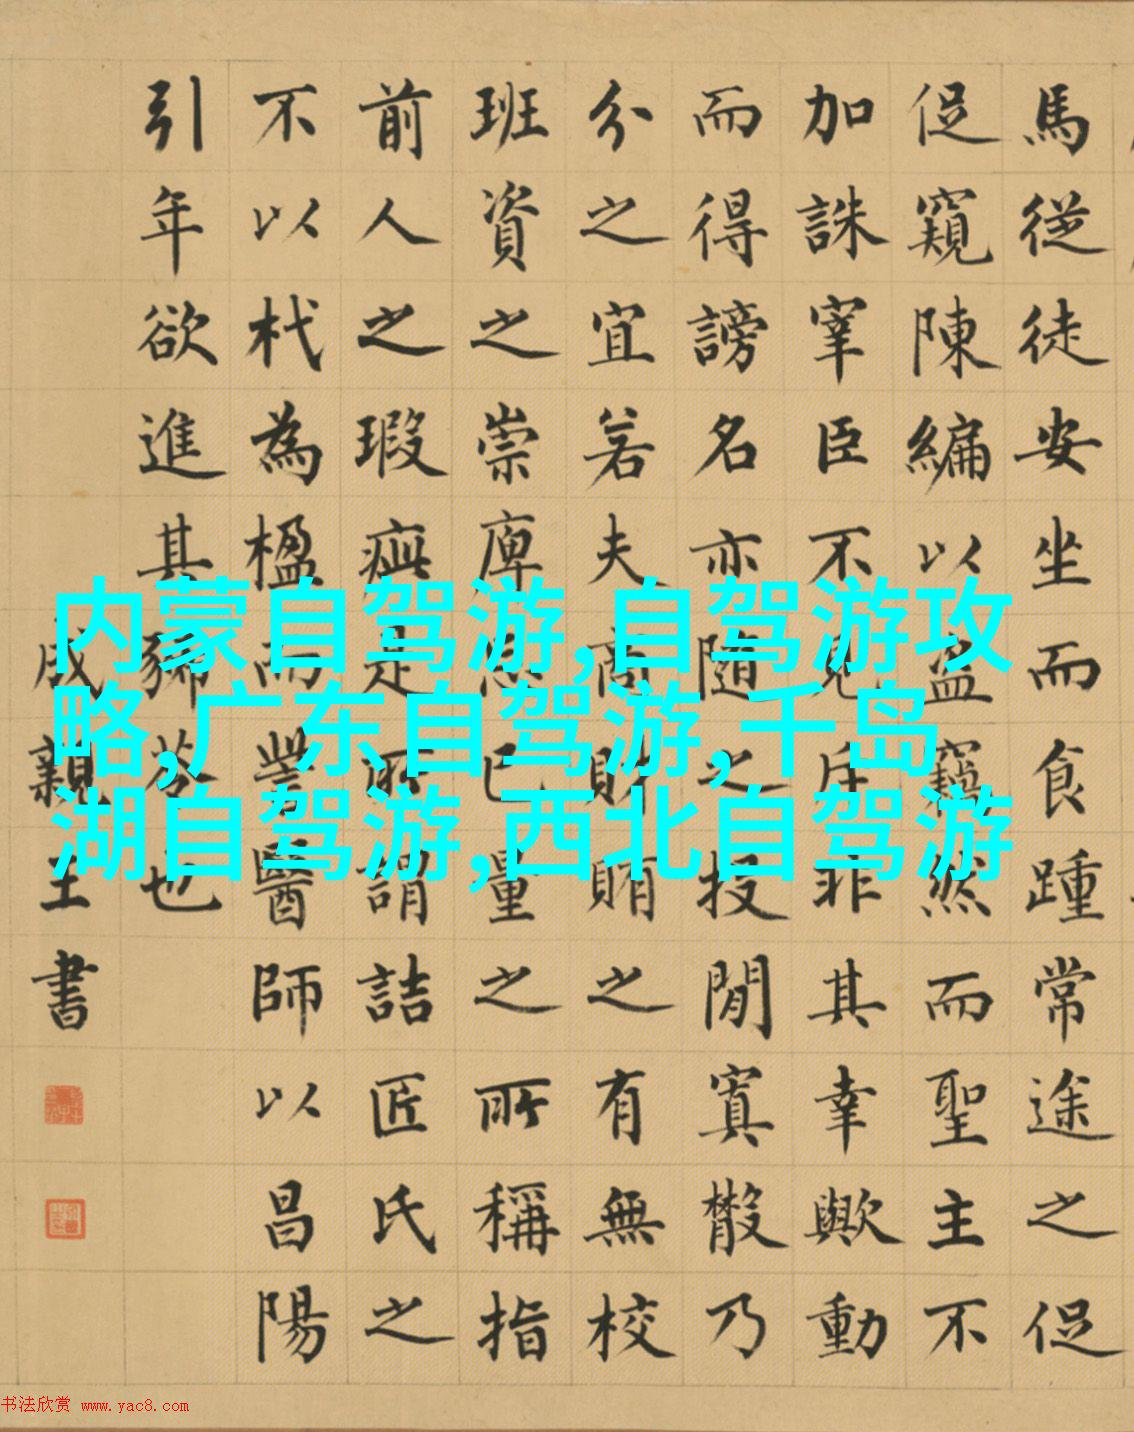 馬從徒安坐而食踵常途之促
促窺陳編以盜竊然而聖主不
加誅宰臣不見斥非其幸歟動
而得謗名亦隨之投閒寘散乃
分之宜若夫商財賄之有無校
班資之崇庳忘已量之所稱指
前人之瑕疵是所謂詰匠氏之
不以杙為楹而訾醫師以昌陽
引年欲進其豨苓也
成親王書
内蒙自驾游,自驾游攻
略,广东自驾游,千岛
湖自驾游,西北自驾游
书法欣赏 www.yac8.com